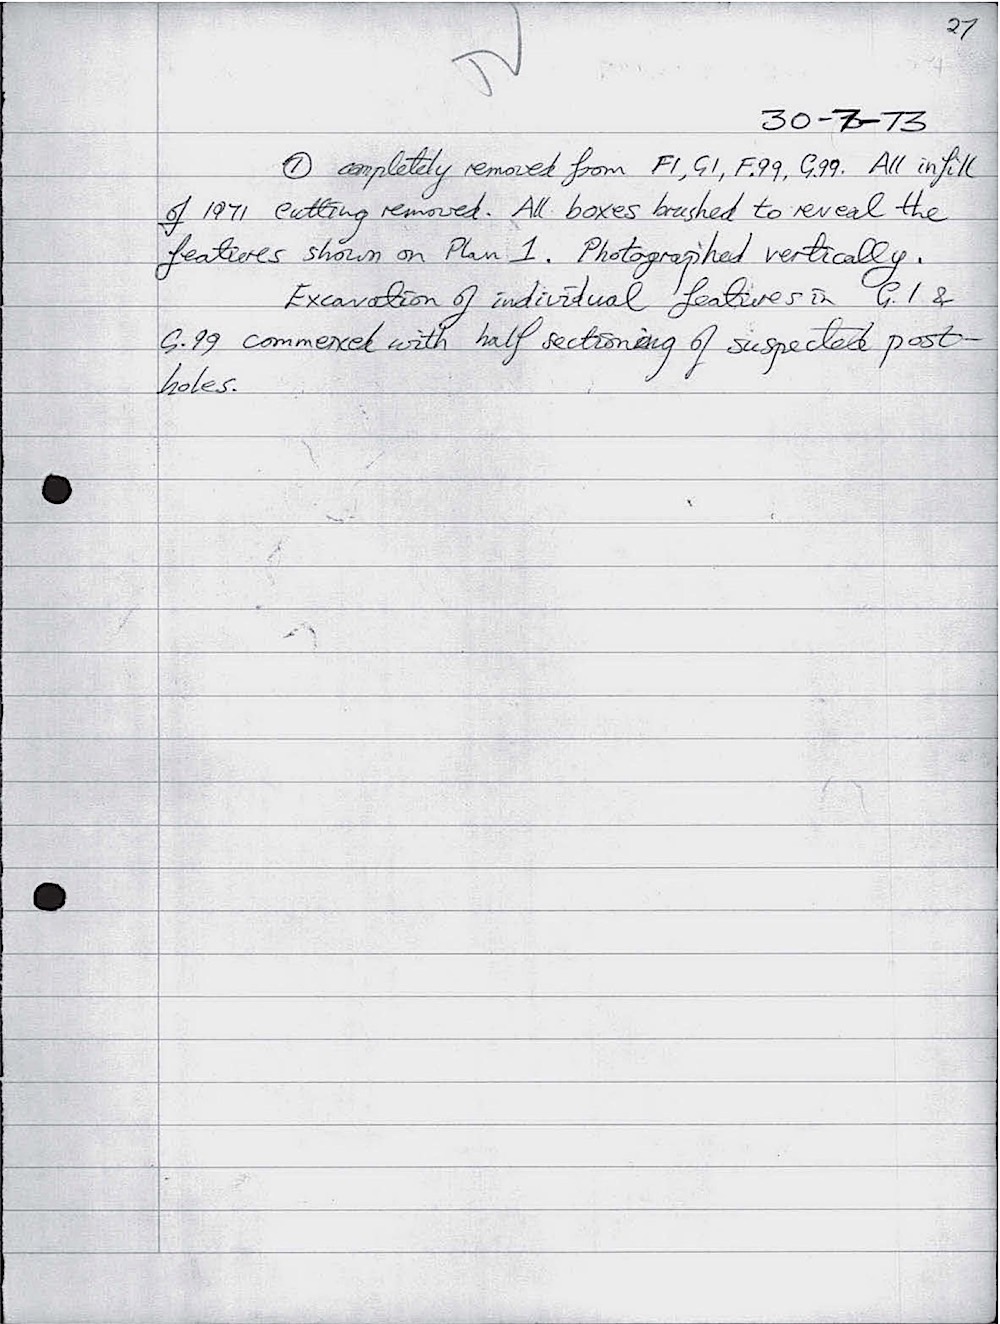 27
30-7-73
① completely removed from F1, G1, F.99, G.99. All infill
of 1971 cutting removed. All boxes brushed to reveal the
features shown on Plan 1. Photographed vertically.
Excavation of individual features in G.1 &
G.99 commenced with half sectioning of suspected post-
holes.